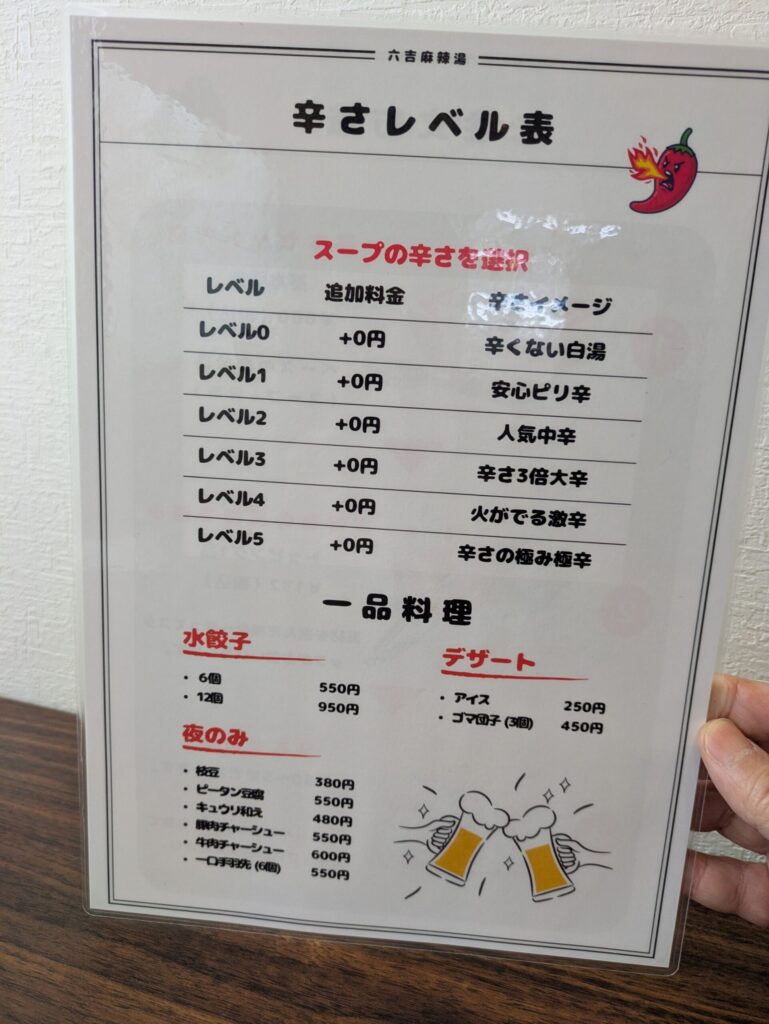 六吉麻辣湯
辛さレベル表
スープの辛さを選択
レベル 追加料金 辛さイメージ
レベル0 +0円 辛くない白湯
レベル1 +0円 安心ピリ辛
レベル2 +0円 人気中辛
レベル3 +0円 辛さ3倍大辛
レベル4 +0円 火がでる激辛
レベル5 +0円 辛さの極み極辛
一品料理
水餃子
・6個 550円
・12個 950円
夜のみ
・枝豆 380円
・ピータン豆腐 550円
・キュウリ和え 480円
・豚肉チャーシュー 550円
・牛肉チャーシュー 600円
・一口手羽先 (6個) 550円
デザート
・アイス 250円
・ゴマ団子 (3個) 450円